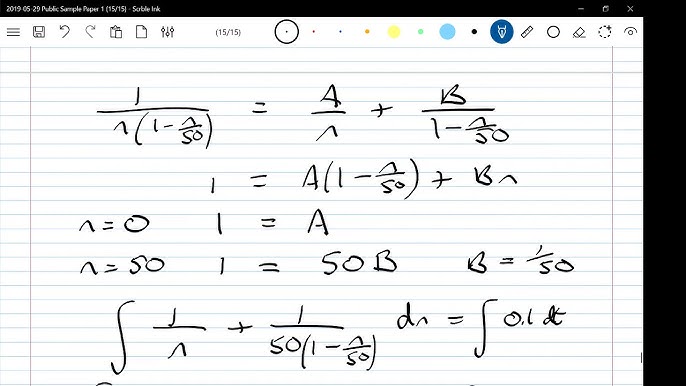 2019-05-29 Public Sample Paper 1 (15/15) - Sorble Ink
(15/15)
1/(n(1-n/50)) = A/n + B/(1-n/50)
1 = A(1-n/50) + Bn
n=0 1 = A
n=50 1 = 50B B = 1/50
∫ 1/n + 1/(50(1-n/50)) dn = ∫ 0.1 dt